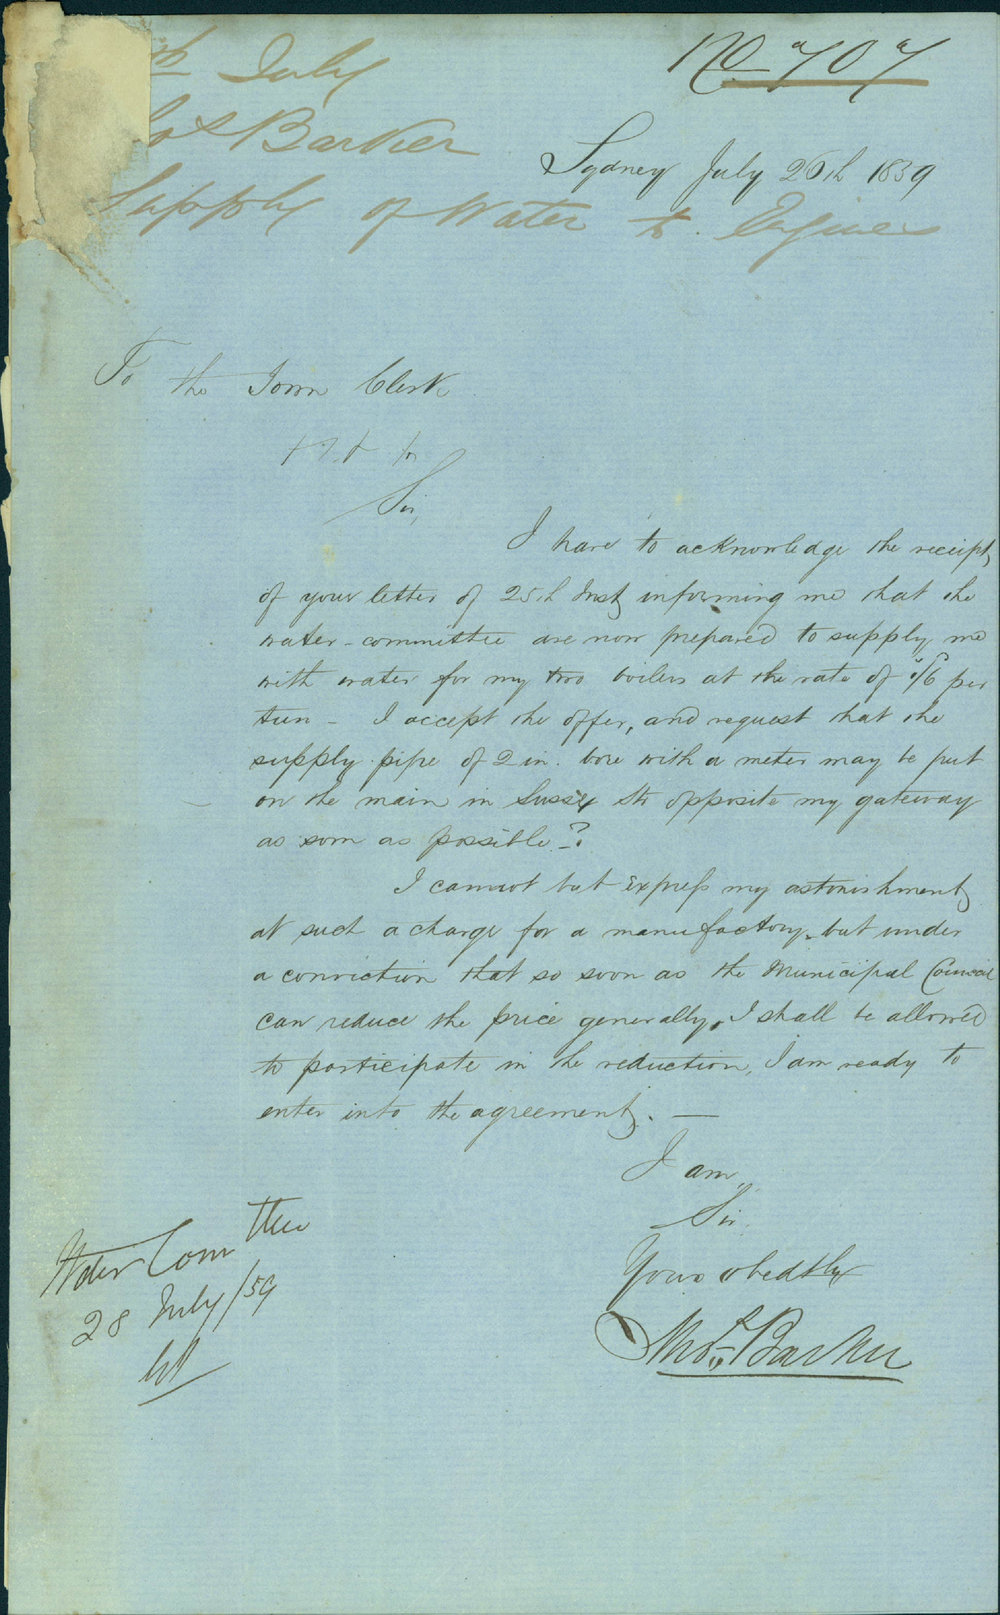 No 707
July
Barker
Supply of Water to Engines
Sydney July 26th 1859
To the Town Clerk
Sir,
I have to acknowledge the receipt
of your letter of 25th Inst informing me that the
water-committee are now prepared to supply me
with water for my two boilers at the rate of 1/6 per
tun - I accept the offer, and request that the
supply pipe of 2 in. bore with a meter may be put
on the main in Sussex St opposite my gateway
as soon as possible -?
I cannot but express my astonishment
at such a charge for a manufactory - but under
a conviction that so soon as the Municipal Council
can reduce the price generally, I shall be allowed
to participate in the reduction, I am ready to
enter into the agreement. —
I am,
Sir,
Yours obedtly
Thos. Barker
Water Committee
28 July /59